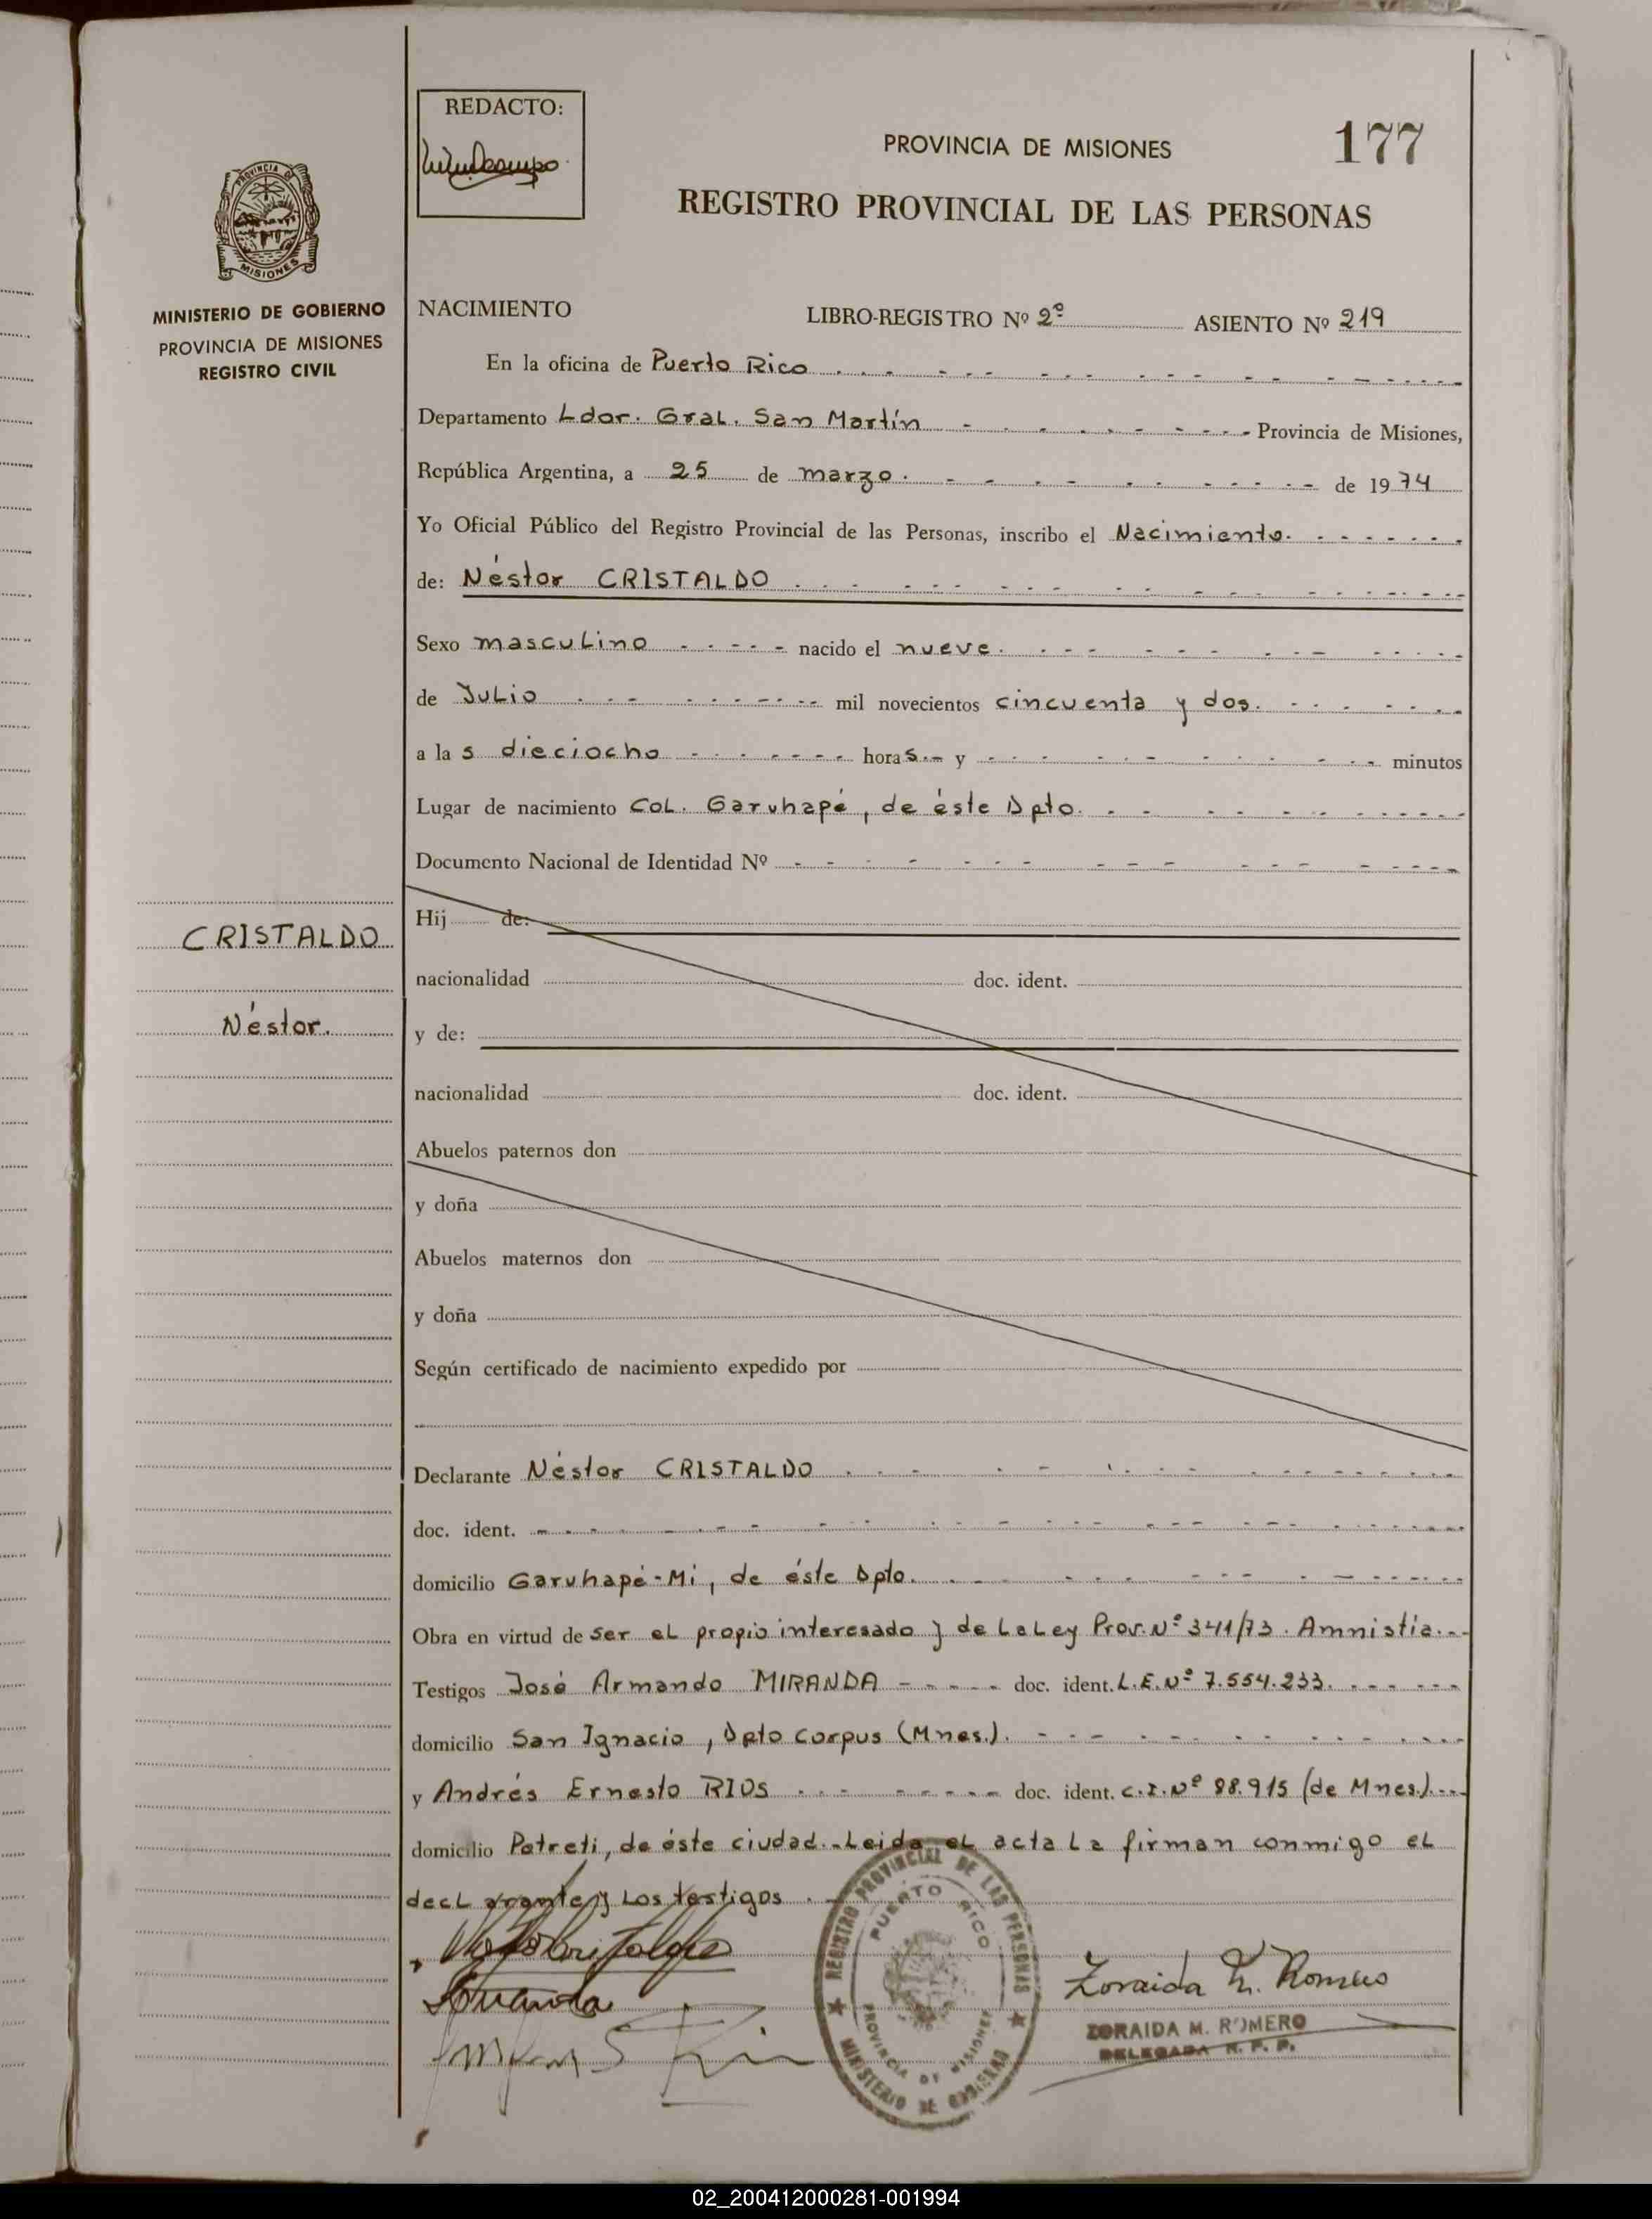 REDACTO:
PROVINCIA DE MISIONES
177
REGISTRO PROVINCIAL DE LAS PERSONAS
PROVINCIA DE
MISIONES
MINISTERIO DE GOBIERNO
PROVINCIA DE MISIONES
REGISTRO CIVIL
NACIMIENTO LIBRO-REGISTRO Nº 2º ASIENTO Nº 219
En la oficina de Puerto Rico
Departamento Ldor. Gral. San Martín Provincia de Misiones,
República Argentina, a 25 de marzo. de 1974
Yo Oficial Público del Registro Provincial de las Personas, inscribo el Nacimiento.
de: Néstor CRISTALDO
Sexo masculino nacido el nueve.
de Julio mil novecientos cincuenta y dos.
a las dieciocho horas. y minutos
Lugar de nacimiento Col. Garuhapé, de éste Dpto.
Documento Nacional de Identidad Nº
Hij de:
CRISTALDO
nacionalidad doc. ident.
Néstor.
y de:
nacionalidad doc. ident.
Abuelos paternos don
y doña
Abuelos maternos don
y doña
Según certificado de nacimiento expedido por
Declarante Néstor CRISTALDO
doc. ident.
domicilio Garuhapé-Mi, de éste Dpto.
Obra en virtud de ser el propio interesado y de la Ley Prov. Nº 341/73. Amnistía.
Testigos José Armando MIRANDA doc. ident. L.E. Nº 7.554.233.
domicilio San Ignacio, Dpto Corpus (Mnes.).
y Andrés Ernesto RIOS doc. ident. C.I. Nº 88.915 (de Mnes.)
domicilio Patreti, de éste ciudad.- Leida el acta la firman conmigo el
declarante y los testigos.
REGISTRO PROVINCIAL DE LAS PERSONAS
PUERTO RICO
PROVINCIA DE MISIONES
MINISTERIO DE GOBIERNO
Zoraida M. Romero
ZORAIDA M. ROMERO
DELEGADA R. P. P.
02_200412000281-001994